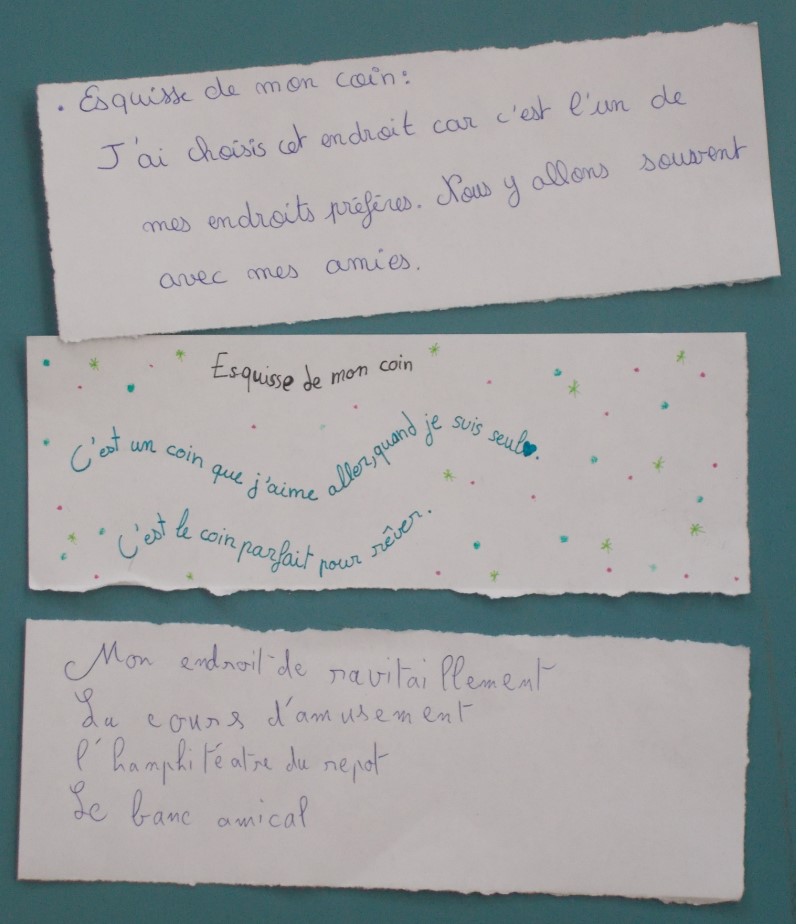 • Esquisse de mon coin:
J'ai choisis cet endroit car c'est l'un de
mes endroits préférés. Nous y allons souvent
avec mes amies.
Esquisse de mon coin
C'est un coin que j'aime aller, quand je suis seul.
C'est le coin parfait pour rêver.
Mon endroit de ravitaillement
La cours d'amusement
l'hamphitéatre du repot
Le banc amical